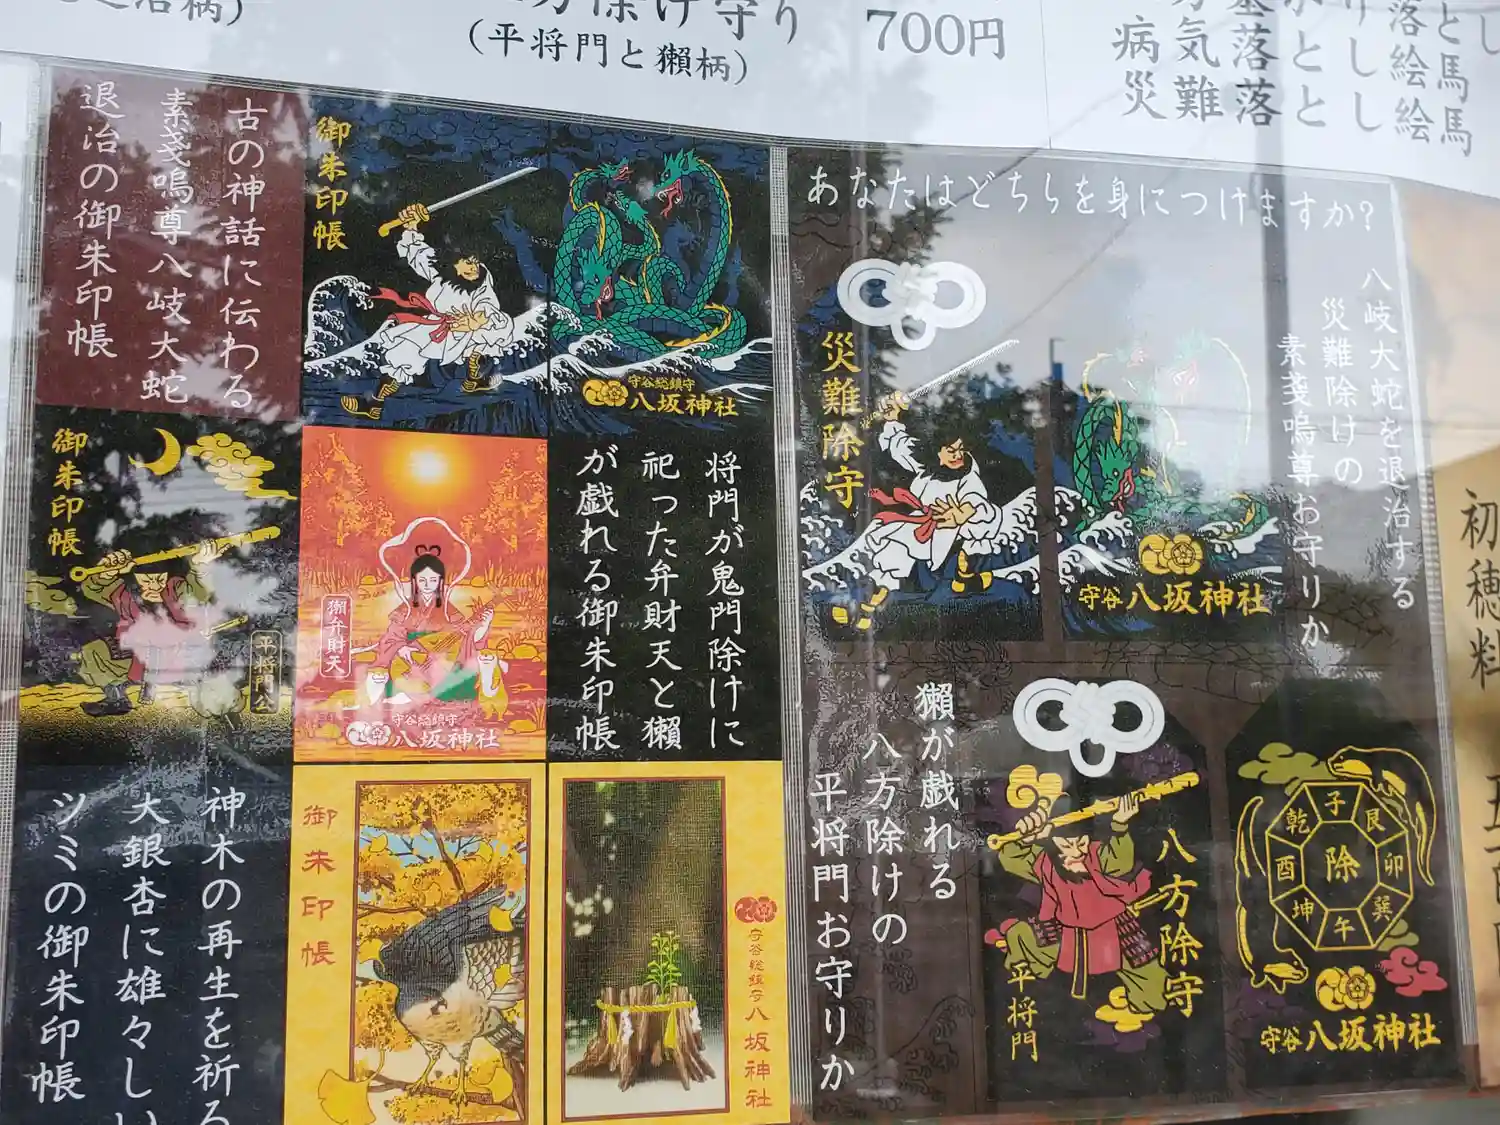 方除け守り
(平将門と獺柄)
700円
病気
災難
落
落とし
落とし
絵馬
絵馬
古の神話に伝わる
素戔嗚尊八岐大蛇
退治の御朱印帳
御朱印帳
守谷総鎮守
八坂神社
御朱印帳
平将門公
獺弁財天
守谷総鎮守
八坂神社
将門が鬼門除けに
祀った弁財天と獺
が戯れる御朱印帳
神木の再生を祈る
大銀杏に雄々しい
ツミの御朱印帳
御朱印帳
守谷総鎮守
八坂神社
あなたはどちらを身につけますか?
八岐大蛇を退治する
災難除けの
素戔嗚尊お守りか
災難除守
守谷八坂神社
獺が戯れる
八方除けの
平将門お守りか
八方除守
平将門
除
子
艮
卯
巽
午
坤
酉
乾
守谷八坂神社
初穂料